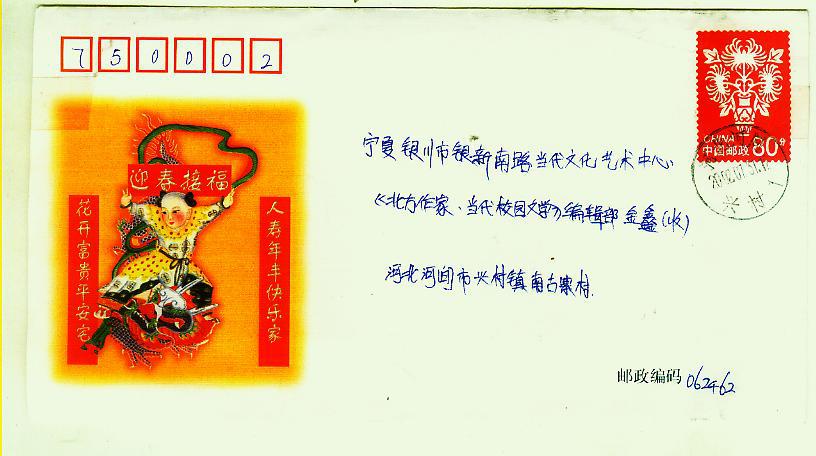 750002
CHINA
中国邮政 80分
迎春接福
花开富贵平安宅
人寿年丰快乐家
宁夏银川市银新南路当代文化艺术中心
《北方作家、当代校园文学》编辑部 金鑫(收)
河北河间市兴村镇南古寨村.
邮政编码 062462